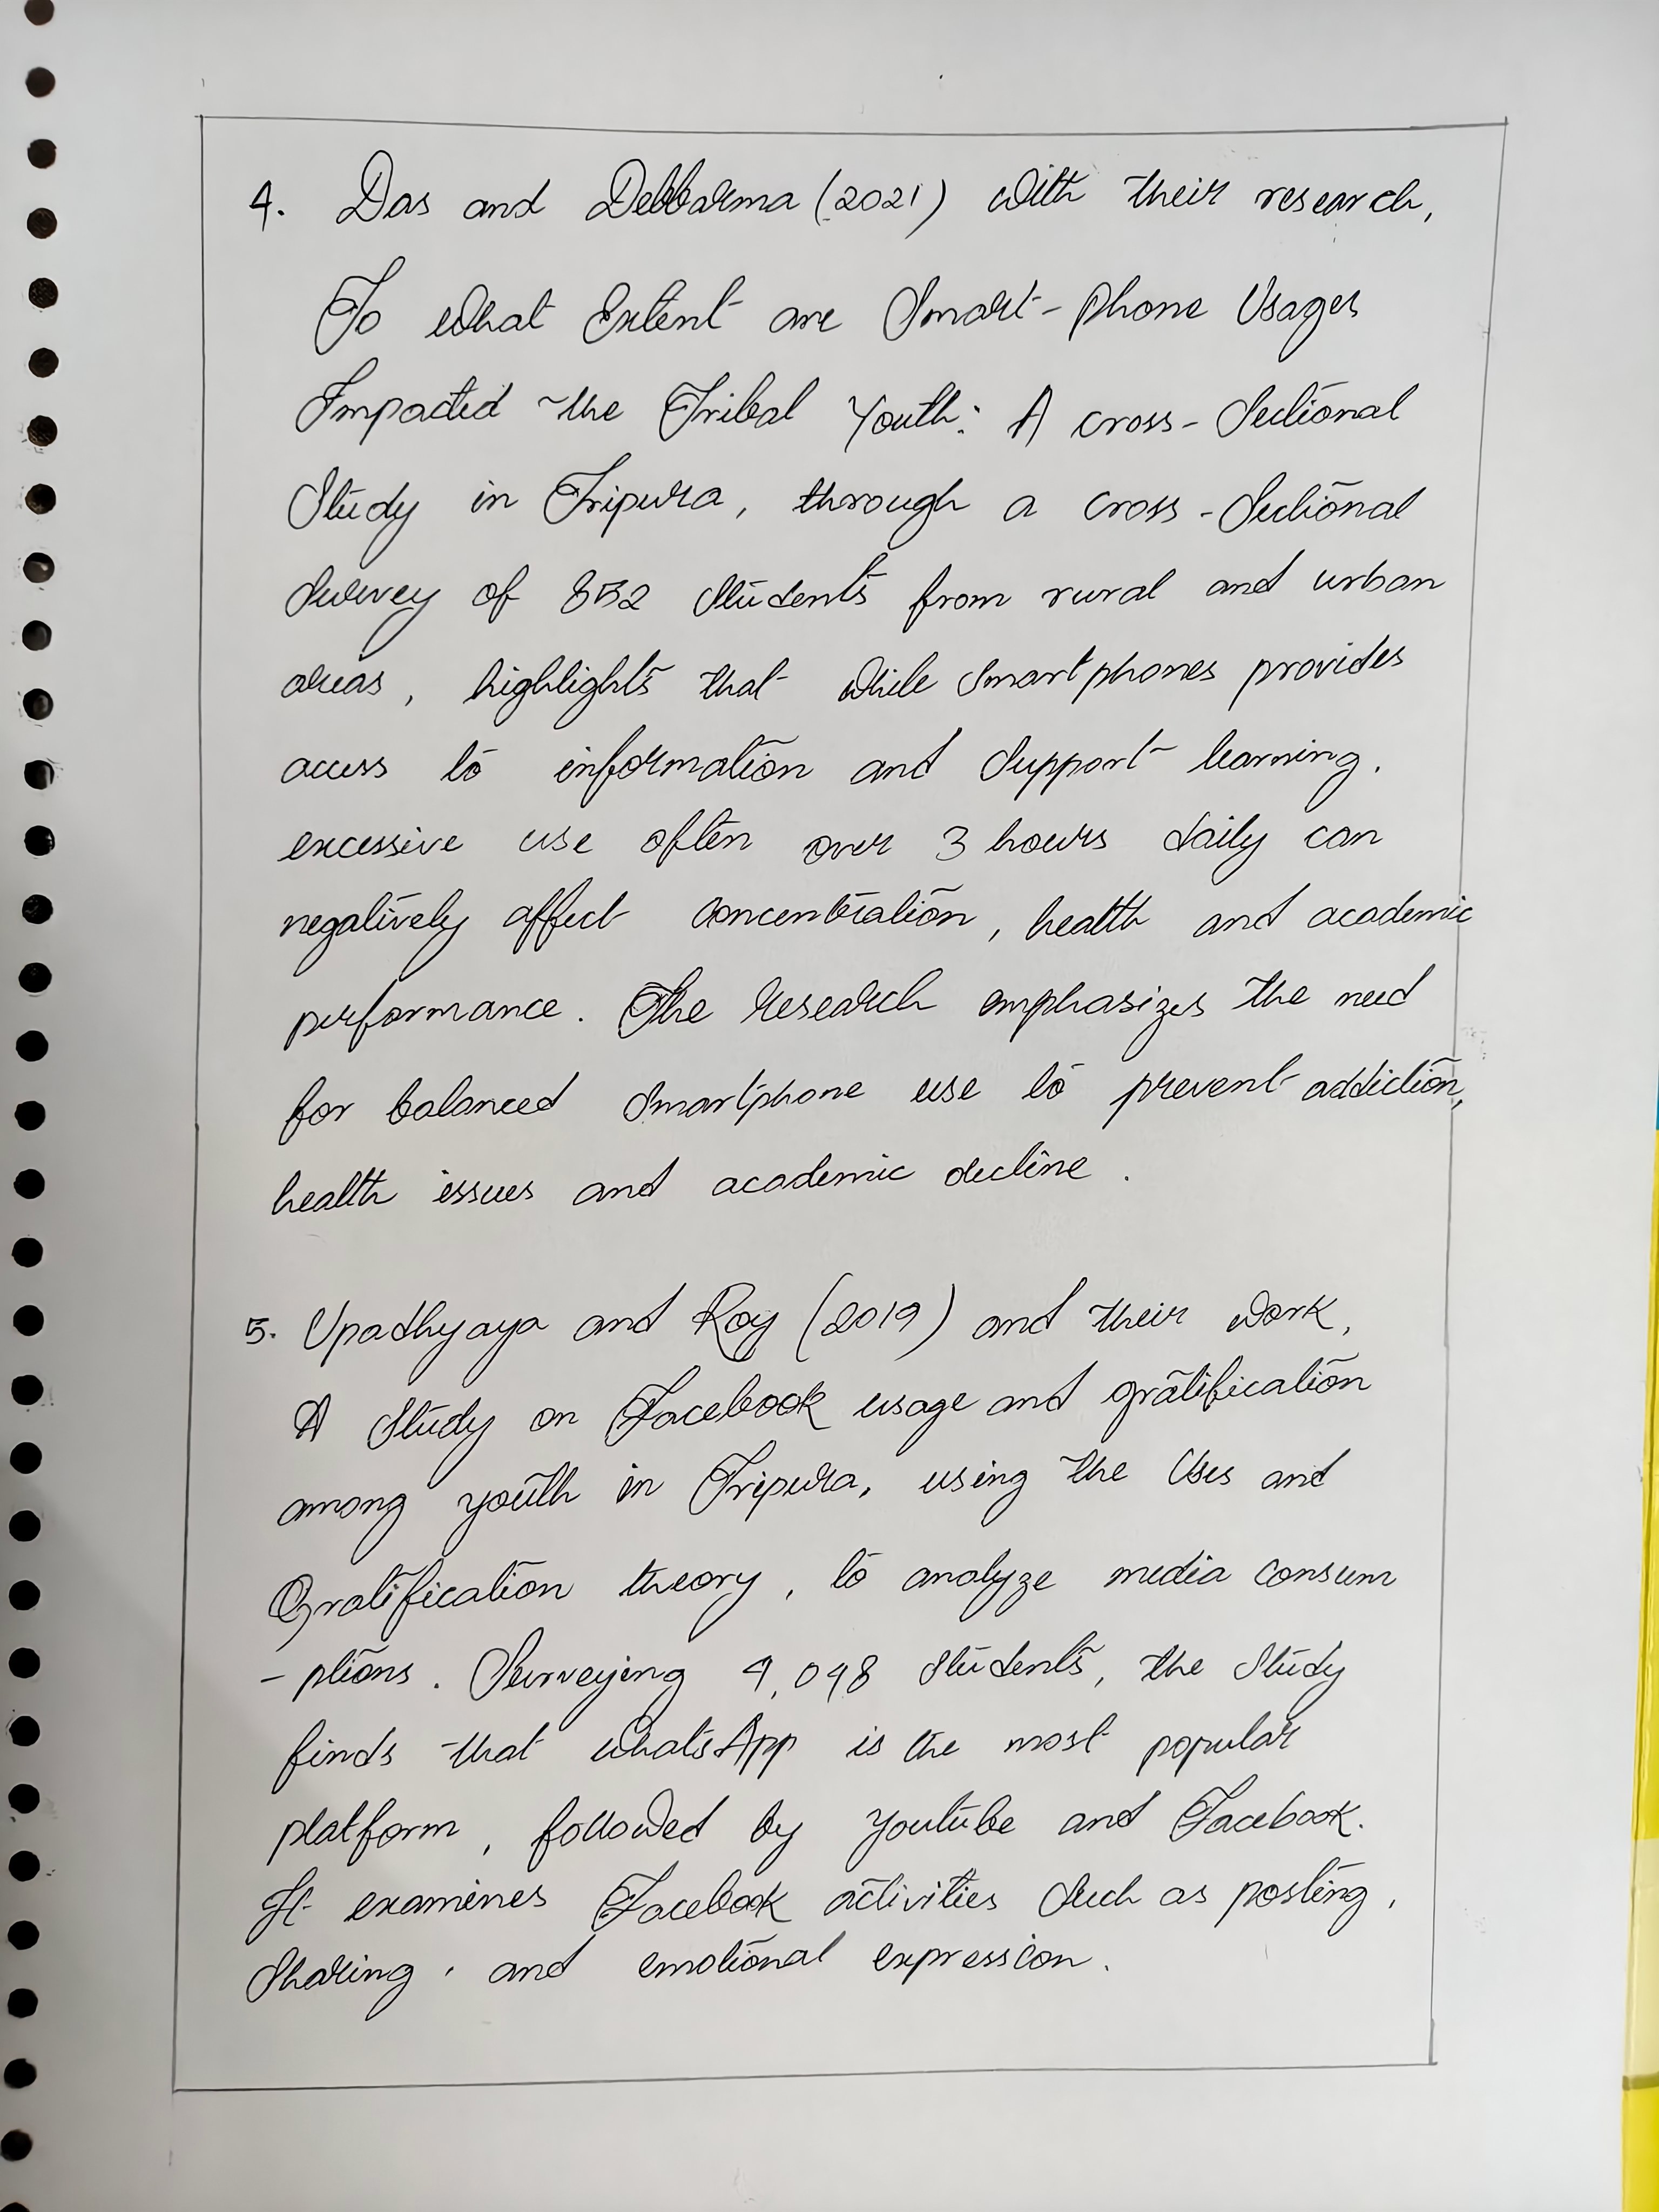 4. Das and Debbarma (2021) with their research,
To what Extent are Smart-Phone Usages
Impacted the Tribal Youth: A cross-Sectional
Study in Tripura, through a cross-Sectional
Survey of 852 students from rural and urban
areas, highlights that while smartphones provides
access to information and support learning.
excessive use often over 3 hours daily can
negatively affect concentration, health and academic
performance. The research emphasizes the need
for balanced smartphone use to prevent addiction,
health issues and academic decline.
5. Upadhyaya and Roy (2019) and their work,
A Study on Facebook usage and gratification
among youth in Tripura, using the Uses and
Gratification theory, to analyze media consum
- ptions. Surveying 4,048 students, the study
finds that whatsApp is the most popular
platform, followed by Youtube and Facebook.
It examines Facebook activities such as posting,
Sharing, and emotional expression.